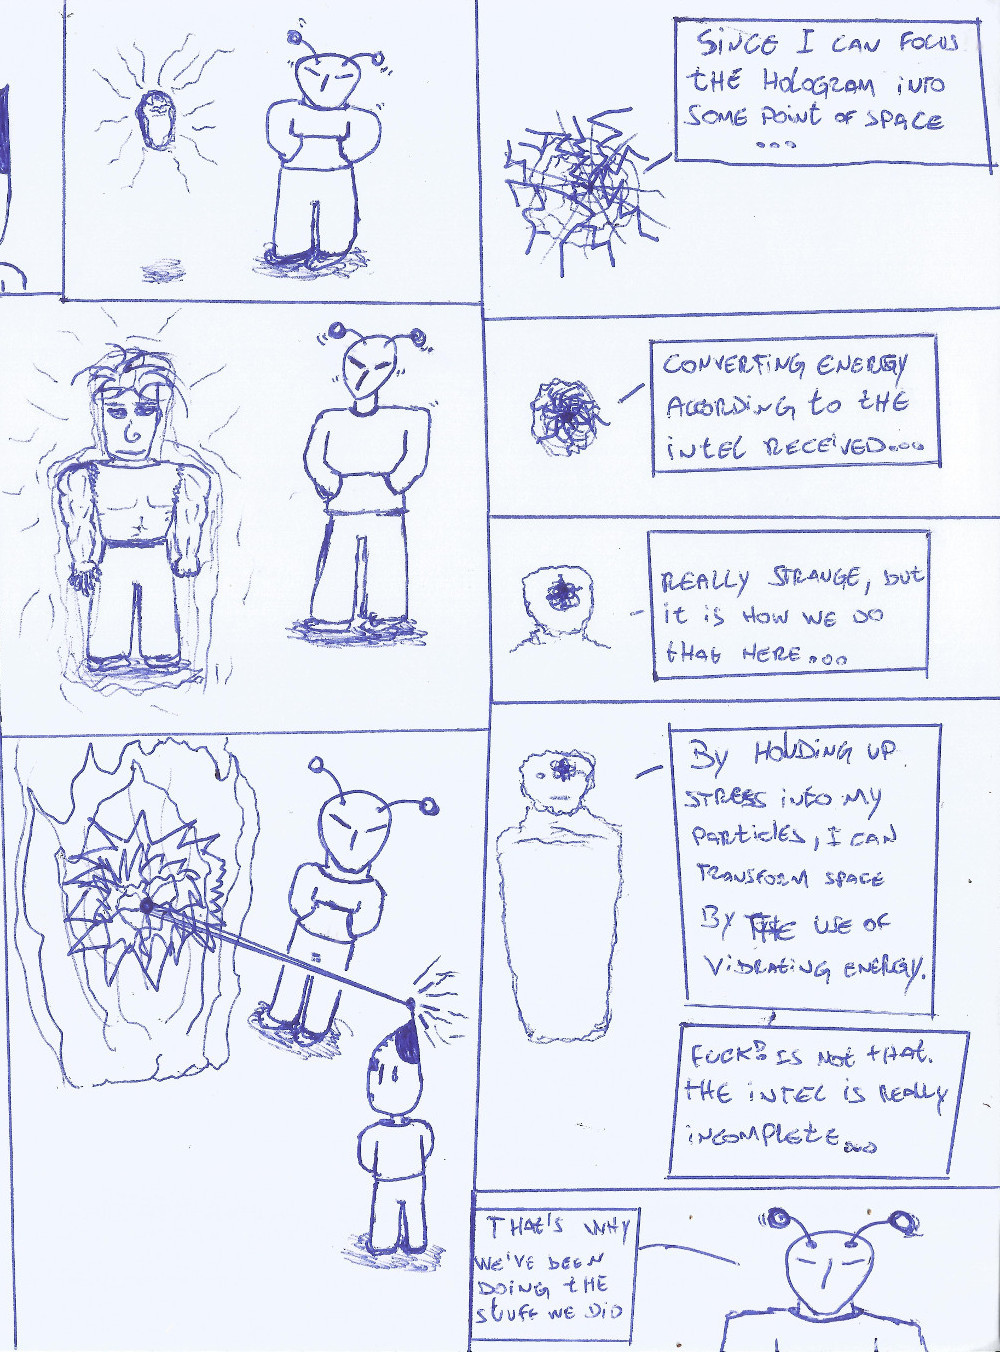 SINCE I CAN FOCUS
THE HOLOGRAM INTO
SOME POINT OF SPACE
...
CONVERTING ENERGY
ACCORDING TO THE
INTEL RECEIVED....
REALLY STRANGE, BUT
IT IS HOW WE DO
THAT HERE....
BY HOLDING UP
STRESS INTO MY
PARTICLES, I CAN
TRANSFORM SPACE
BY THE USE OF
VIBRATING ENERGY.
FUCK? IS NOT THAT.
THE INTEL IS REALLY
INCOMPLETE...
THAT'S WHY
WE'VE BEEN
DOING THE
STUFF WE DID